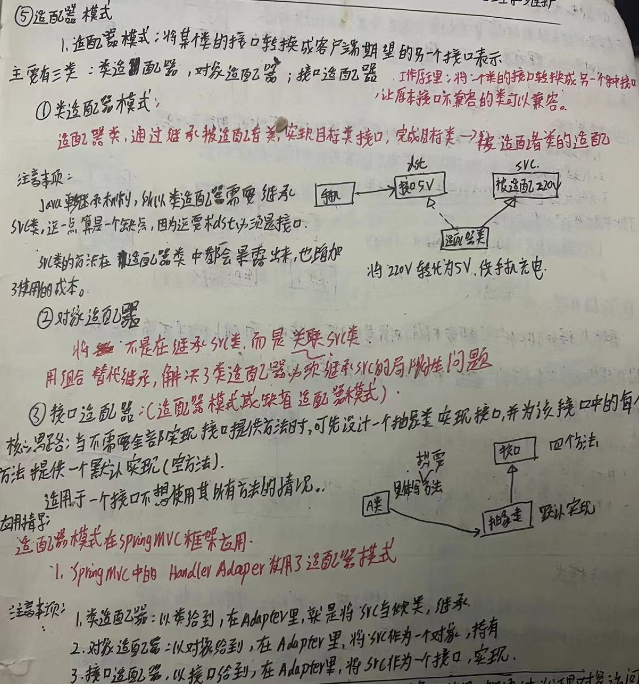 ⑤适配器模式
1.适配器模式：将某个类的接口转换成客户端期望的另一个接口表示
主要有三类：类适配器，对象适配器；接口适配器
工作原理：将一个类的接口转换成另一个种接口
，让原本接口不兼容的类可以兼容。
①类适配器模式：
适配器类，通过继承被适配者类，实现目标类接口，完成目标类→被适配者类的适配
注意事项：
Java单继承机制，所以类适配器需要继承
src类，这一点算是一个缺点，因为这要求dst必须是接口.
src类的方法在适配器类中都会暴露出来，也增加
了使用的成本。
dst
src.
手机
接口5V
被适配220V
适配器类
将220V转化为5V，供手机充电.
②对象适配器
将 不是在继承src类，而是关联src类.
用组合替代继承，解决了类适配器必须继承src的局限性问题
③接口适配器：（适配器模式或缺省适配器模式）.
核心思路：当不需要全部实现接口提供方法时，可先设计一个抽象类实现接口，并为该接口中的每个
方法提供一个默认实现（空方法）.
适用于一个接口不想使用其所有方法的情况.
想要
具体写方法
A类
接口
四个方法
抽象类
默认实现
应用情景：
适配器模式在SpringMVC框架应用.
1. SpringMVC中的 HandlerAdaper使用了适配器模式
注意事项：
1.类适配器：以类给到，在Adapter里，就是将src当做类，继承
2.对象适配器：以对象给到，在Adapter里，将src作为一个对象，持有
3.接口适配器，以接口给到，在Adapter里，将src作为一个接口，实现.